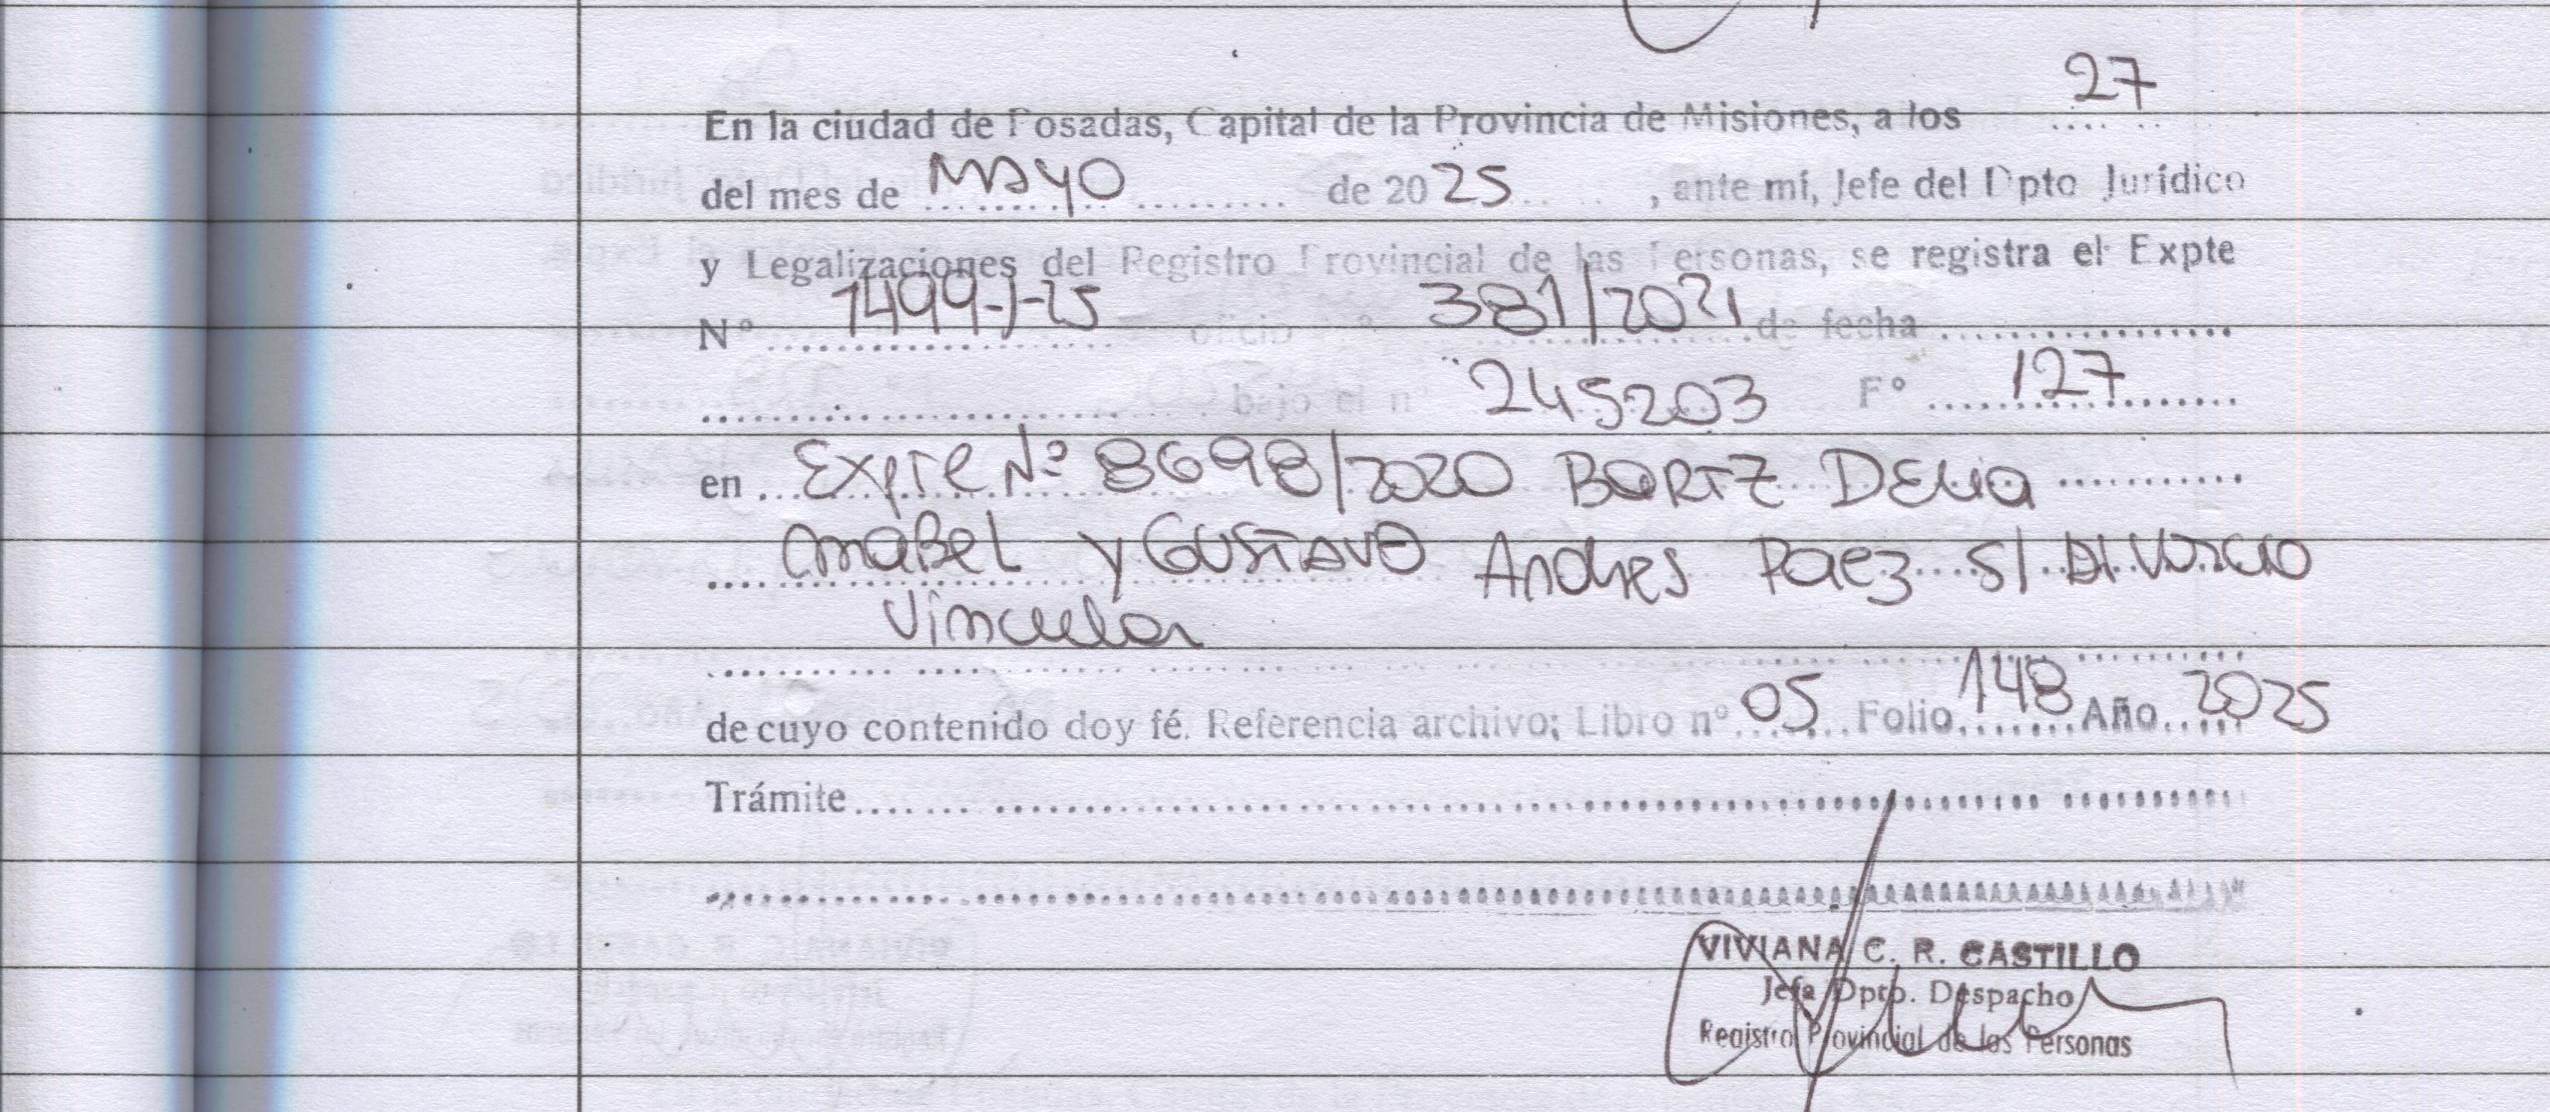 27
En la ciudad de Posadas, Capital de la Provincia de Misiones, a los ........
del mes de MAYO de 2025, ante mí, Jefe del Dpto Jurídico
y Legalizaciones del Registro Provincial de las Personas, se registra el Expte
N° 1499-J-25 oficio n° 381/2021 de fecha ..................
.............................. bajo el n° 245203 F° 127
en Expte N° 8698/2020 BARTZ DELIA
AnaBeL y GUSTAVO Andres Paez S/ DIVORCIO
Vincular
de cuyo contenido doy fé. Referencia archivo; Libro n° 05 Folio 148 Año 2025
Trámite..............................
VIVIANA C. R. CASTILLO
Jefa Dpto. Despacho
Registro Provincial de las Personas